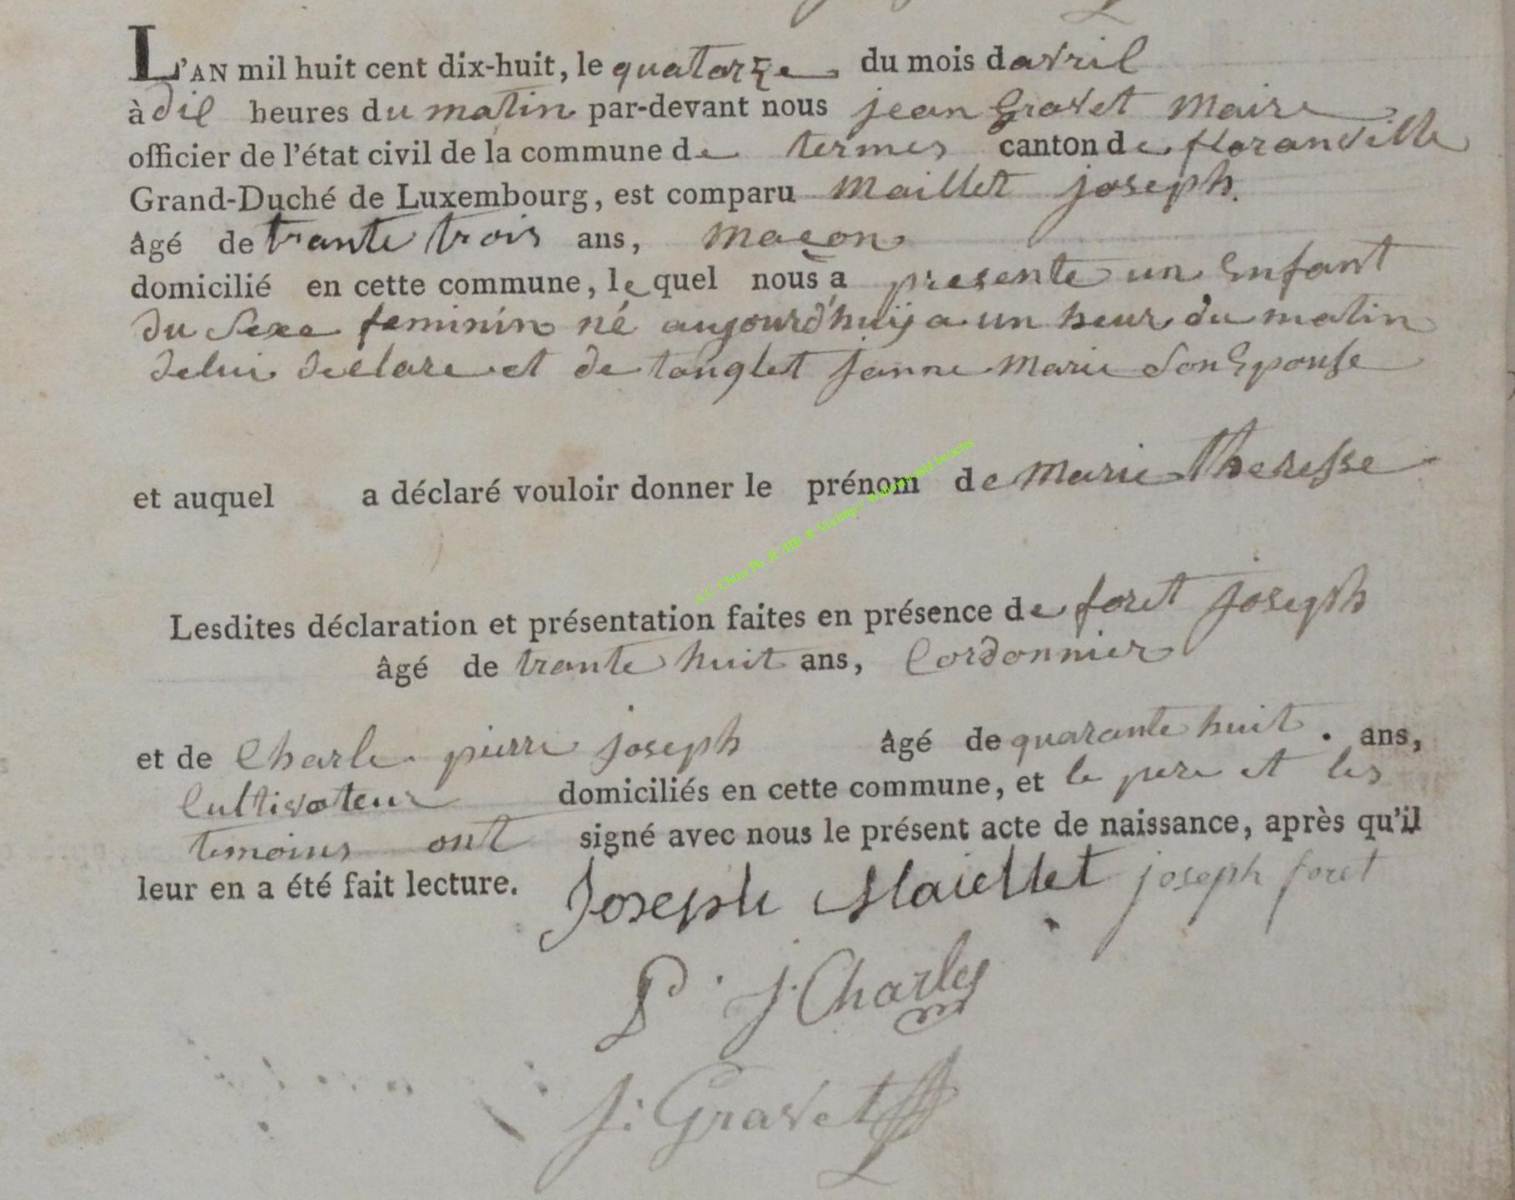 L'AN mil huit cent dix-huit, le quatorze du mois davril
à dil heures du matin par-devant nous jean Gravet Maire
officier de l'état civil de la commune de termes canton de floranville
Grand-Duché de Luxembourg, est comparu Maillet joseph.
âgé de trante trois ans, maçon
domicilié en cette commune, lequel nous a presente un Enfant
du Sexe feminin né aujourd'huij a un heur du matin
delui declare et de tanglet janne Marie Son Epouse
et auquel a déclaré vouloir donner le prénom de Marie Theresse
Lesdites déclaration et présentation faites en présence de foret joseph
âgé de trante huit ans, Cordonnier
et de Charle pierre joseph âgé de quarante huit . ans,
Cultivateur domiciliés en cette commune, et le pere et les
temoins ont signé avec nous le présent acte de naissance, après qu'il
leur en a été fait lecture. Joseph Maiellet joseph foret
P. J. Charles
J: Gravet